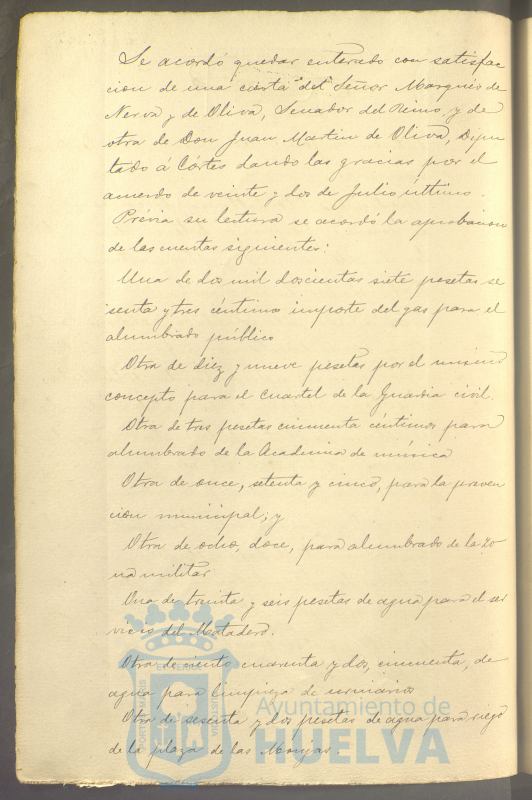 Se acordó quedar enterado con satisfac
cion de una carta del Señor Marqués de
Nerva y de Oliva, Senador del Reino, y de
otra de Don Juan Martin de Oliva, Dipu
tado á Córtes dando las gracias por el
acuerdo de veinte y dos de Julio último.
Prévia su lectura se acordó la aprobacion
de las cuentas siguientes:
Una de dos mil doscientas siete pesetas se
senta y tres céntimos importe del gas para el
alumbrado público
Otra de diez y nueve pesetas por el mismo
concepto para el cuartel de la Guardia civil.
Otra de tres pesetas cincuenta céntimos para
alumbrado de la Academia de música
Otra de once, setenta y cinco, para la preven
cion municipal; y
Otra de ocho, doce, para alumbrado de la zo
na militar
Una de treinta y seis pesetas de agua para el ser
vicio del Matadero.
Otra de ciento cuarenta y dos, cincuenta, de
agua para limpieza de urinarios
Otra de sesenta y dos pesetas de agua para riego
de la plaza de las Monjas.
Ayuntamiento de
HUELVA